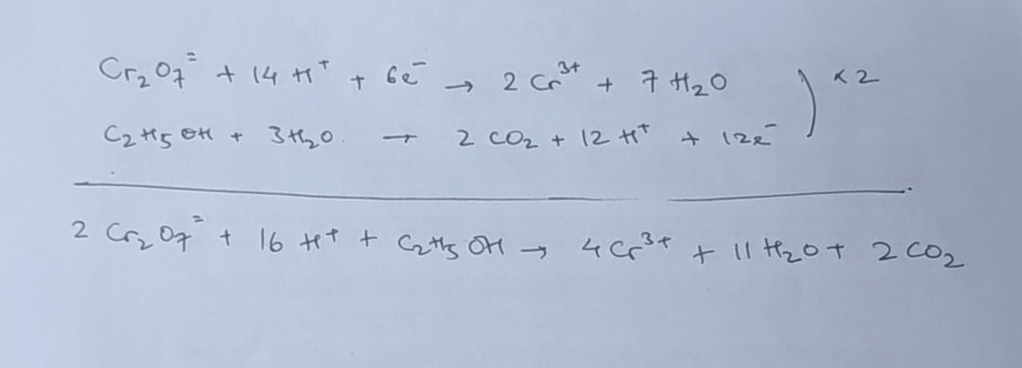 Cr₂O₇⁼ + 14 H⁺ + 6e⁻ → 2 Cr³⁺ + 7 H₂O ) × 2
C₂H₅OH + 3H₂O. → 2 CO₂ + 12 H⁺ + 12e⁻
2 Cr₂O₇⁼ + 16 H⁺ + C₂H₅OH → 4Cr³⁺ + 11 H₂O + 2 CO₂